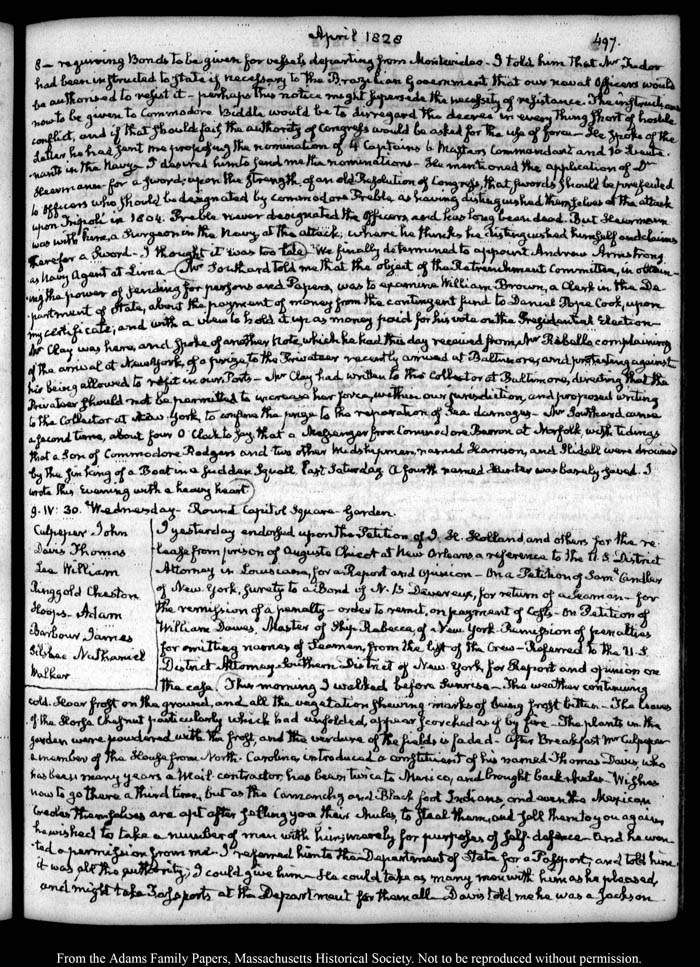 April 1828
497.
8 — requiring Bonds to be given for vessels departing from Montevideo — I told him that Mr Tudor
had been instructed to state if necessary to the Brazilian Government that our naval Officers would
be authorised to resist it — perhaps this notice might supersede the necessity of resistance. The instructions
now to be given to Commodore Biddle would be to disregard the decree in every thing short of hostile
conflict, and if that should fail the authority of Congress would be asked for the use of force — He spoke of the
Letter he had sent me proposing the nomination of 4 Captains 6 Masters Commandant and 10 Lieute-
nants in the Navy — I desired him to send me the nominations — He mentioned the application of Dr
Heermann for a sword, upon the strength of an old Resolution of Congress, that swords should be presented
to Officers who should be designated by commodore Preble as having distinguished themselves at the attack
upon Tripoli in 1804. Preble never designated the Officers, and has long been dead. But Heermann
was with him, a Surgeon in the Navy, at the attack, where he thinks he distinguished himself and claims
therefor a Sword — I thought it was too late. We finally determined to appoint Andrew Armstrong
as Navy Agent at Lima — Mr Southard told me that the object of the Retrenchment Committee, in obtain-
ing the power of sending for persons and Papers, was to examine William Brown, a Clerk in the De-
partment of State, about the payment of money from the contingent fund to Daniel Pope Cook, upon
my certificate; and with a view to hold it up as money paid for his vote on the Presidential Election —
Mr Clay was here, and spoke of another Note, which he had this day received from Mr Rebello complaining
of the arrival at New York, of a prize to the Privateer recently arrived at Baltimore, and protesting against
his being allowed to refit in our Ports — Mr Clay had written to the Collector at Baltimore, directing that the
Privateer should not be permitted to increase her force, within our jurisdiction, and proposed writing
to the Collector at New York, to confine the prize to the reparation of Sea damages — Mr Southard came
a second time, about four O'Clock to say, that a Messenger from Commodore Barron at Norfolk, with tidings
that a Son of Commodore Rodgers and two other Midshipmen, named Harrison, and Slidell were drowned
by the sinking of a Boat in a sudden Squall last Saturday. A fourth named Hunter was barely saved. I
wrote this Evening with a heavy heart
9. IV: 30. Wednesday — Round Capitol Square — Garden.
Culpeper John
Davis Thomas
Lee William
Ringgold Cheston
Hoops Adam
Barbour James
Silsbee Nathaniel
Walker
I yesterday endorsed upon the Petition of J. H. Holland, and others for the re-
lease from prison of Auguste Chicot at New Orleans a reference to the U.S. District
Attorney in Louisiana, for a Report and Opinion — On a Petition of Sam' Candler
of New York, surety to a Bond of N. B Devereux, for return of a Seaman — for
the remission of a penalty — order to remit, on payment of Costs — On Petition of
William Dawes, Master of Ship Rebecca, of New York — Remission of penalties
for omitting names of Seamen, from the list of the Crew — Referred to the U.S
District Attorney Southern District of New York, for Report and opinion on
the case. This morning I walked before Sunrise — The weather continuing
cold. Hoar frost on the ground, and all the vegetation shewing marks of being frost bitten — The leaves
of the Horse Chesnut particularly which had unfolded, appear scorched as if by fire — The plants in the
garden were powdered with the frost, and the verdure of the fields is faded — After Breakfast Mr Culpeper
a member of the House from North-Carolina, introduced a constituent of his named Thomas Davis, who
has been many years a Mail contractor, has been twice to Mexico, and brought back Mules — Wishes
now to go there a third time, but as the Camanchy and Black foot Indians, and even the Mexican
Creoles themselves are apt after selling you their Mules, to steal them, and sell them to you again,
he wished to take a number of men with him, merely for purposes of self-defence — And he wan-
ted a permission from me — I referred him to the Department of State for a Passport, and told him
it was all the authority, I could give him — He could take as many men with him as he pleased,
and might take Passports at the Department for them all — Davis told me he was a Jackson
From the Adams Family Papers, Massachusetts Historical Society. Not to be reproduced without permission.